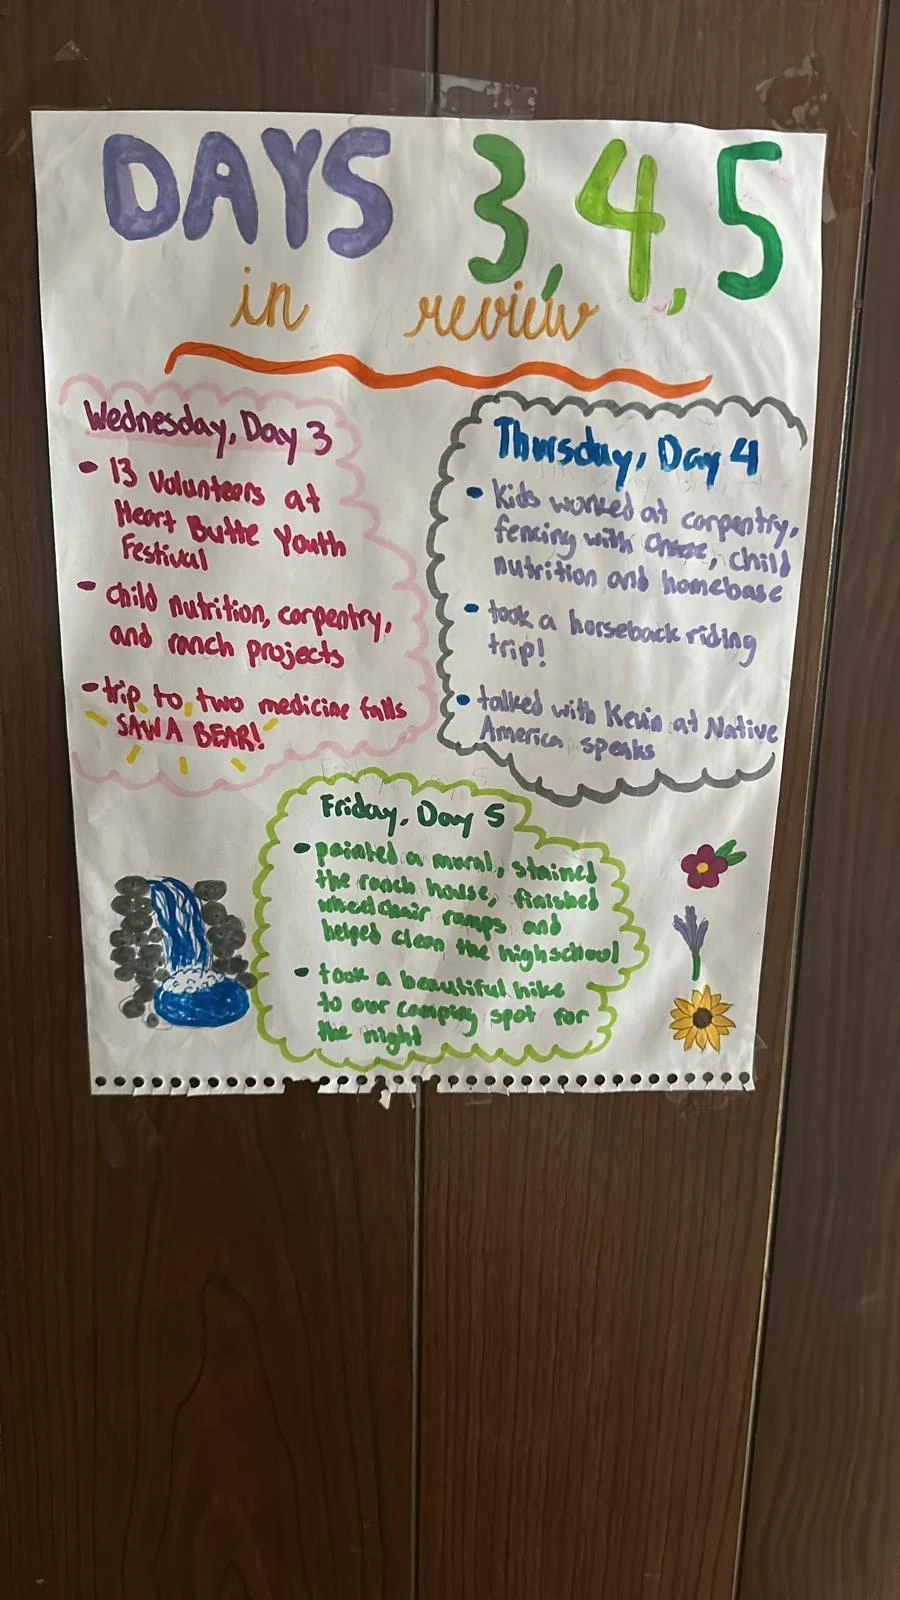 DAYS 3, 4, 5
in review
Wednesday, Day 3
• 13 volunteers at
Heart Butte Youth
Festival
• child nutrition, carpentry,
and ranch projects
• trip to two medicine falls
SAW A BEAR!
Thursday, Day 4
• Kids worked at carpentry,
fencing with , child
nutrition and homebase
• took a horseback riding
trip!
• talked with Kevin at Native
America speaks
Friday, Day 5
• painted a mural, stained
the ranch house, finished
wheelchair ramps and
helped clean the highschool
• took a beautiful hike
to our camping spot for
the night